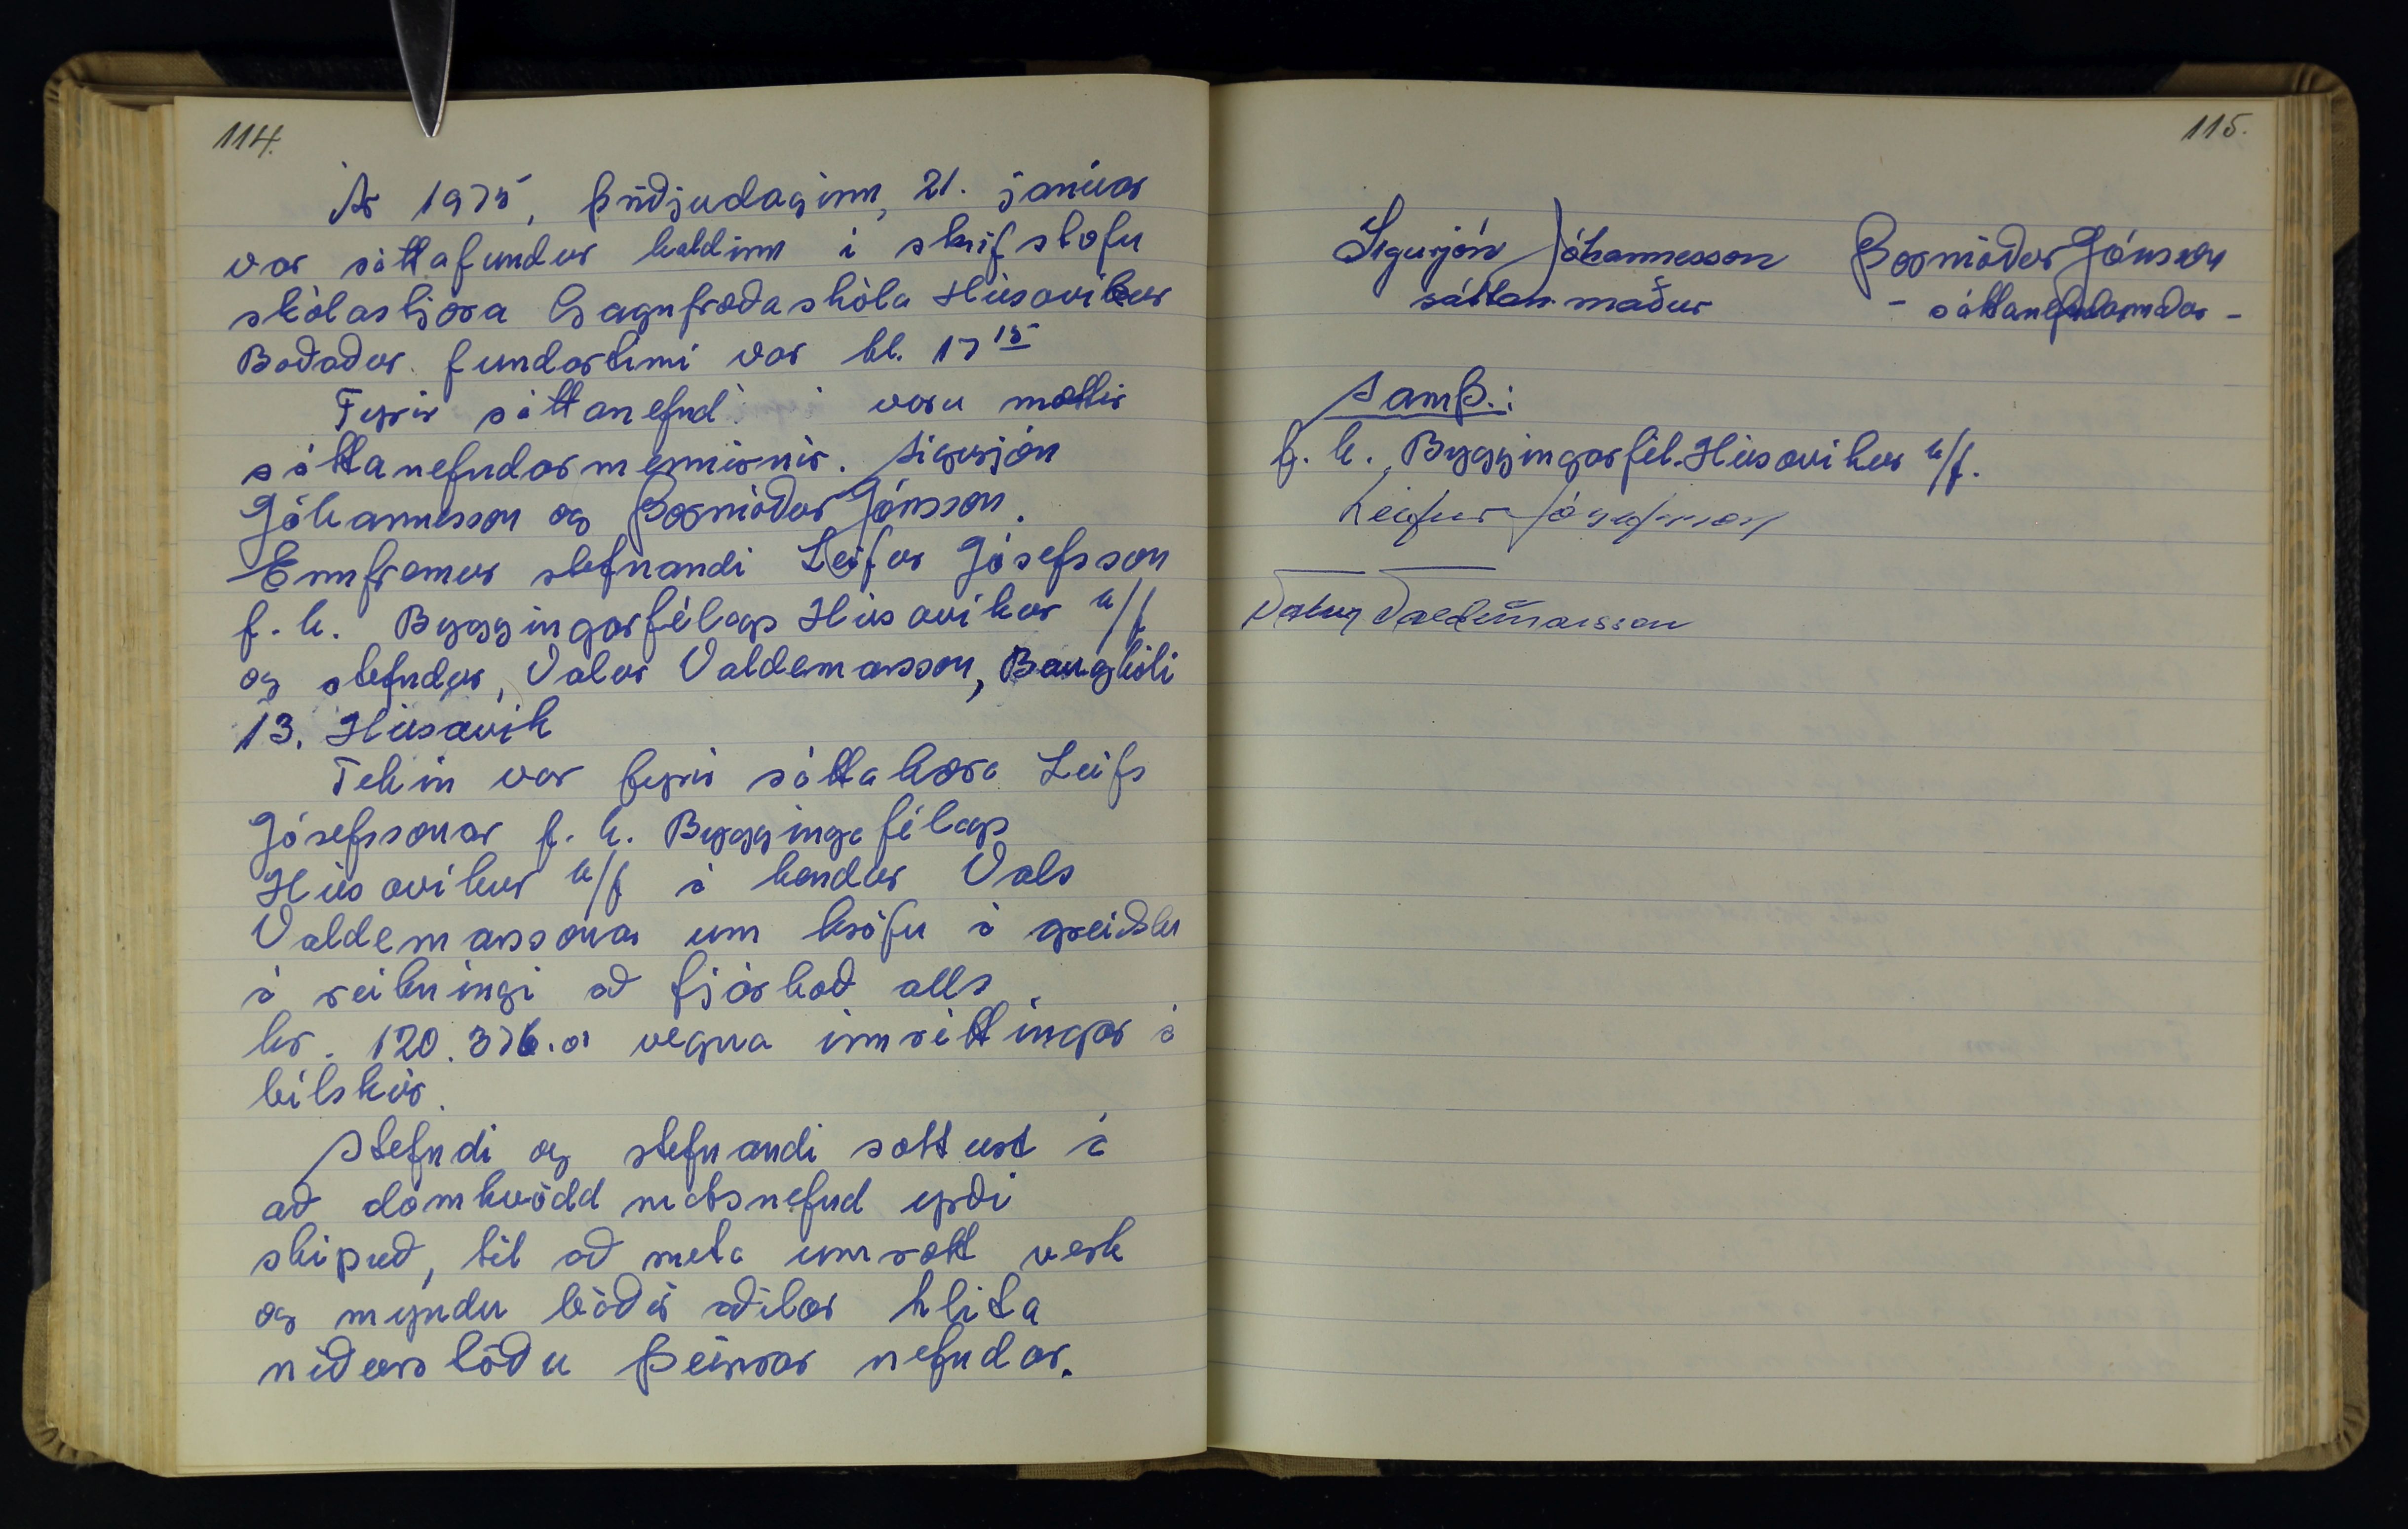 114.
Ár 1975, þriðjudaginn, 21. janúar
var sáttafundur haldinn í skrifstofu
skólastjóra Gagnfræðaskóla Húsavíkur
Boðaður fundartími var kl. 17 15
Fyrir sáttanefnd voru mættir
sáttanefndarmennirnir. Sigurjón
Jóhannesson og Þormóður Jónsson.
Ennfremur stefnandi Leifur Jósefsson
f.h. Byggingarfélags Húsavíkur h/f
og stefndur, Valur Valdemarsson, Baughóli
13. Húsavík
Tekin var fyrir sáttakæra Leifs
Jósefssonar f.h. Byggingafélags
Húsavíkur h/f á hendur Vals
Valdemarssonar um kröfu á greiðslu
á reikningi að fjárhæð alls
kr. 120.376.00 vegna innréttingar á
bílskúr.
Stefndi og stefnandi sættust á
að dómkvödd matsnefnd yrði
skipuð, til að meta umrætt verk
og myndu báðir aðilar hlíta
niðurstöðu þeirrar nefndar.
115.
Sigurjón Jóhannesson Þormóður Jónsson
sáttan.maður - sáttanefndarmaður -
Samþ.:
f.h. Byggingarfél. Húsavíkur h/f.
Leifur Jósefsson
Valur Valdemarsson